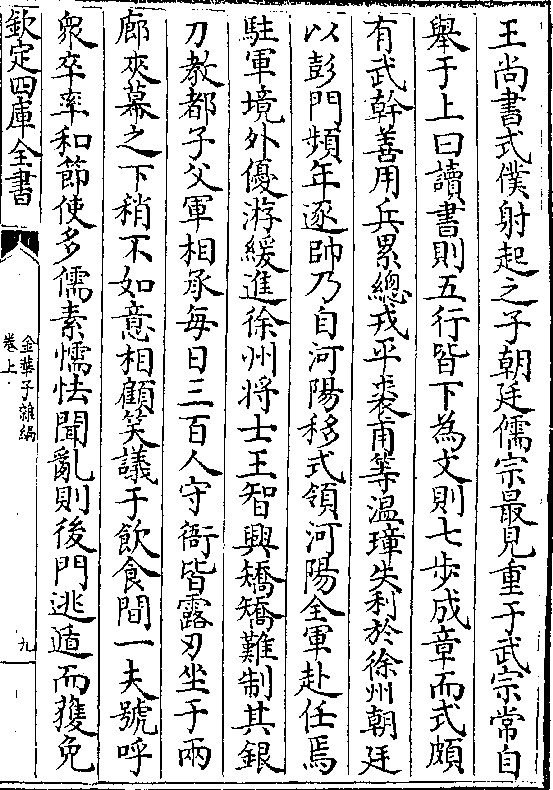 王尚書式僕射起之子朝廷儒宗最見重于武宗常自
舉于上曰讀書則五行皆下為文則七步成章而式頗
有武幹善用兵累總戎平裘甫等温璋失利於徐州朝廷
以彭門頻年逐帥乃自河陽移式領河陽全軍赴任焉
駐軍境外優游緩進徐州將士王智興矯矯難制其銀
刀教都子父軍相承每日三百人守衙皆露刃坐于兩
廊夾幕之下稍不如意相顧笑議于飲食間一夫號呼
衆卒率和節使多儒素懦怯聞亂則後門逃遁而獲免
欽定四庫全書
金華子雜編
卷上
九